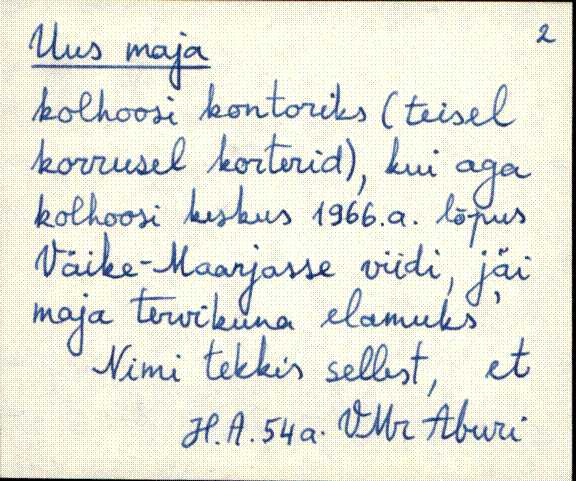 Uus maja 2
kolhoosi kontoriks (teisel
korrusel korterid), kui aga
kolhoosi keskus 1966.a. lõpus
Väike-Maarjasse viidi, jäi
maja tervikuna elamuks
Nimi tekkis sellest, et
H.A. 54 a. VMr Aburi